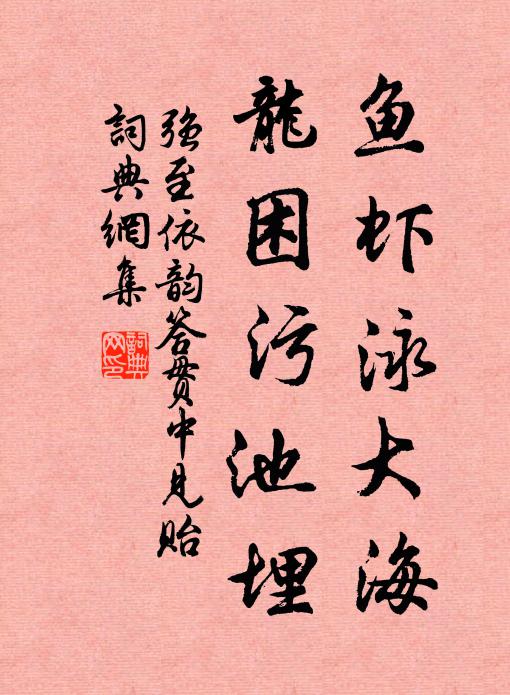 鱼虾泳大海
龍困污池埋
強至依韵答贯中见贻
詞典網集
詞典
网印